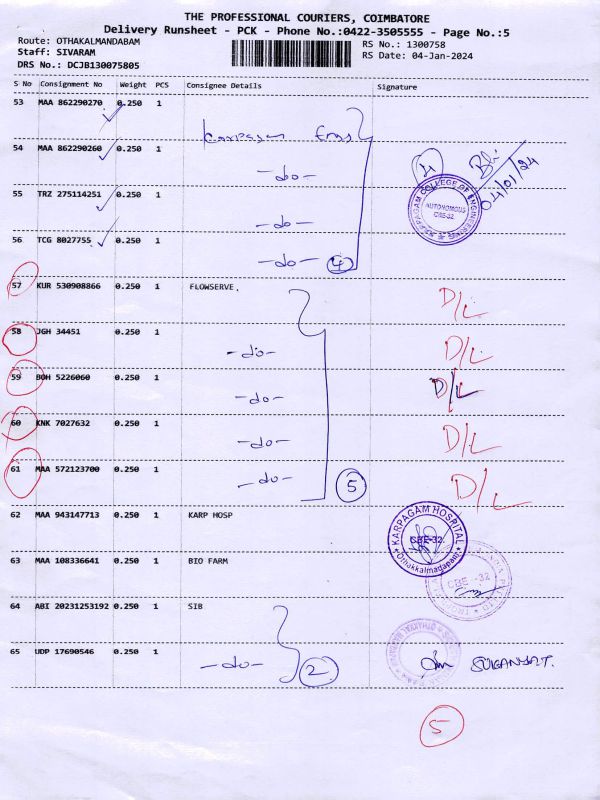 THE PROFESSIONAL COURIERS, COIMBATORE
Delivery Runsheet - PCK - Phone No.:0422-3505555 - Page No.:5
Route: OTHAKALMANDABAM
Staff: SIVARAM
DRS No.: DCJB130075805
RS No.: 1300758
RS Date: 04-Jan-2024
S No Consignment No Weight PCS Consignee Details Signature
53 MAA 862290270 0.250 1
Karpagam Engg
54 MAA 862290260 0.250 1
-do-
4
04/01/24
KARPAGAM COLLEGE OF ENGINEERING
AUTONOMOUS
CBE-32
55 TRZ 275114251 0.250 1
-do-
56 TCG 8027755 0.250 1
-do- 4
57 KUR 530908866 0.250 1 FLOWSERVE, D/L
58 JGH 34451 0.250 1
-do- D/L
59 BOH 5226060 0.250 1
-do- D/L
60 KNK 7027632 0.250 1
-do- D/L
61 MAA 572123700 0.250 1
-do- 5 D/L
62 MAA 943147713 0.250 1 KARP HOSP
KARPAGAM HOSPITAL
CBE-32
Othakkalmadapam
63 MAA 108336641 0.250 1 BIO FARM
CBE -32
64 ABI 20231253192 0.250 1 SIB
65 UDP 17690546 0.250 1
-do- 2
5